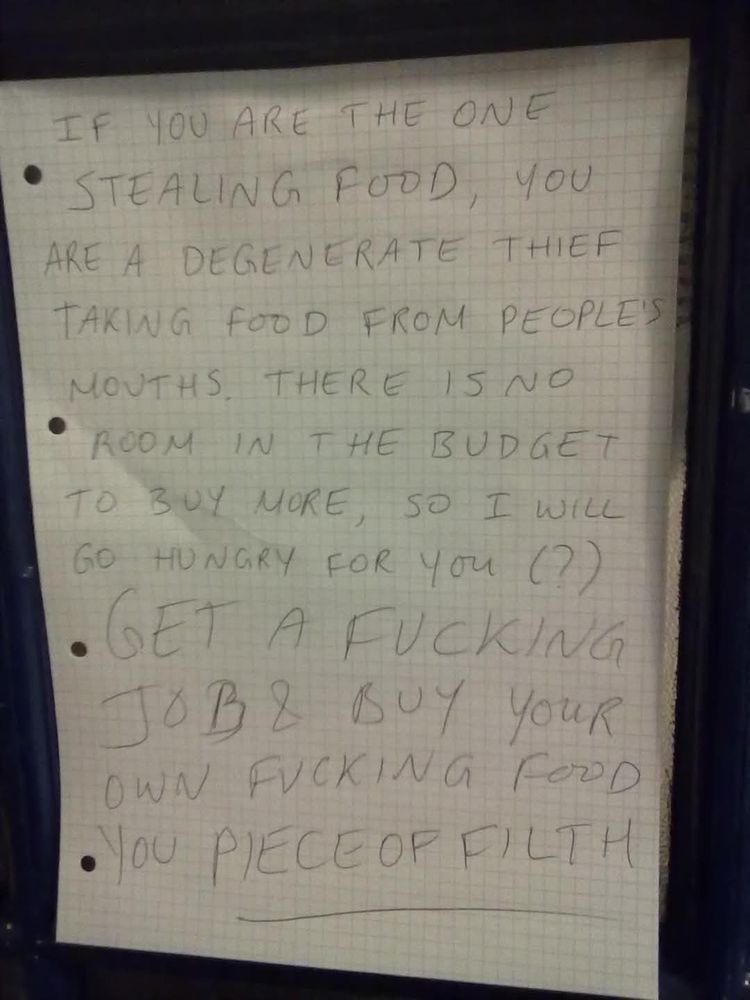 IF YOU ARE THE ONE
STEALING FOOD, YOU
ARE A DEGENERATE THIEF
TAKING FOOD FROM PEOPLE'S
MOUTHS. THERE IS NO
ROOM IN THE BUDGET
TO BUY MORE, SO I WILL
GO HUNGRY FOR YOU (?)
GET A FUCKING
JOB & BUY YOUR
OWN FUCKING FOOD
YOU PIECE OF FILTH